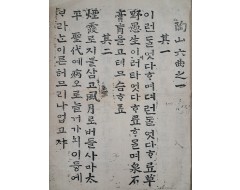 陶山六曲之一
其一
이런ᄃᆞᆯ엇다ᄒᆞ며뎌런ᄃᆞᆯ엇다ᄒᆞ료草
野愚生이이러타엇다ᄒᆞ료ᄒᆞᄆᆞᆯ며泉石
膏肓을고텨므슴ᄒᆞ료
其二
煙霞로지블삼고風月로버들사마太
平聖代예病으로늘거가뇌이듕에
ᄇᆞ라ᄂᆞᆫ이른허므리나업고쟈